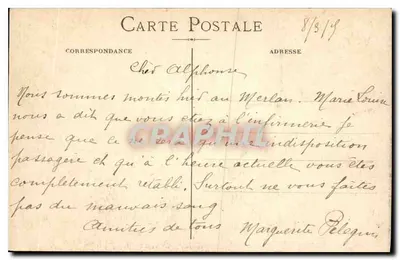 CARTE POSTALE
8/3/5
CORRESPONDANCE
ADRESSE
Chèr Alphonse
Nous sommes montés hièr au Merlan. Marie Louise
nous a dit que vous étiez à l'infirmerie je
pense que ce ne sera qu'une indisposition
passagère et qu'à l'heure actuelle vous êtes
complètement rétabli. Surtout ne vous faites
pas du mauvais sang
Amitiés de tous
Marguerite
CPAPHIL